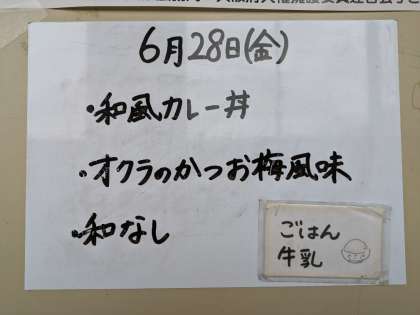 6月28日(金)
・和風カレー丼
・オクラのかつお梅風味
・和なし
ごはん
牛乳